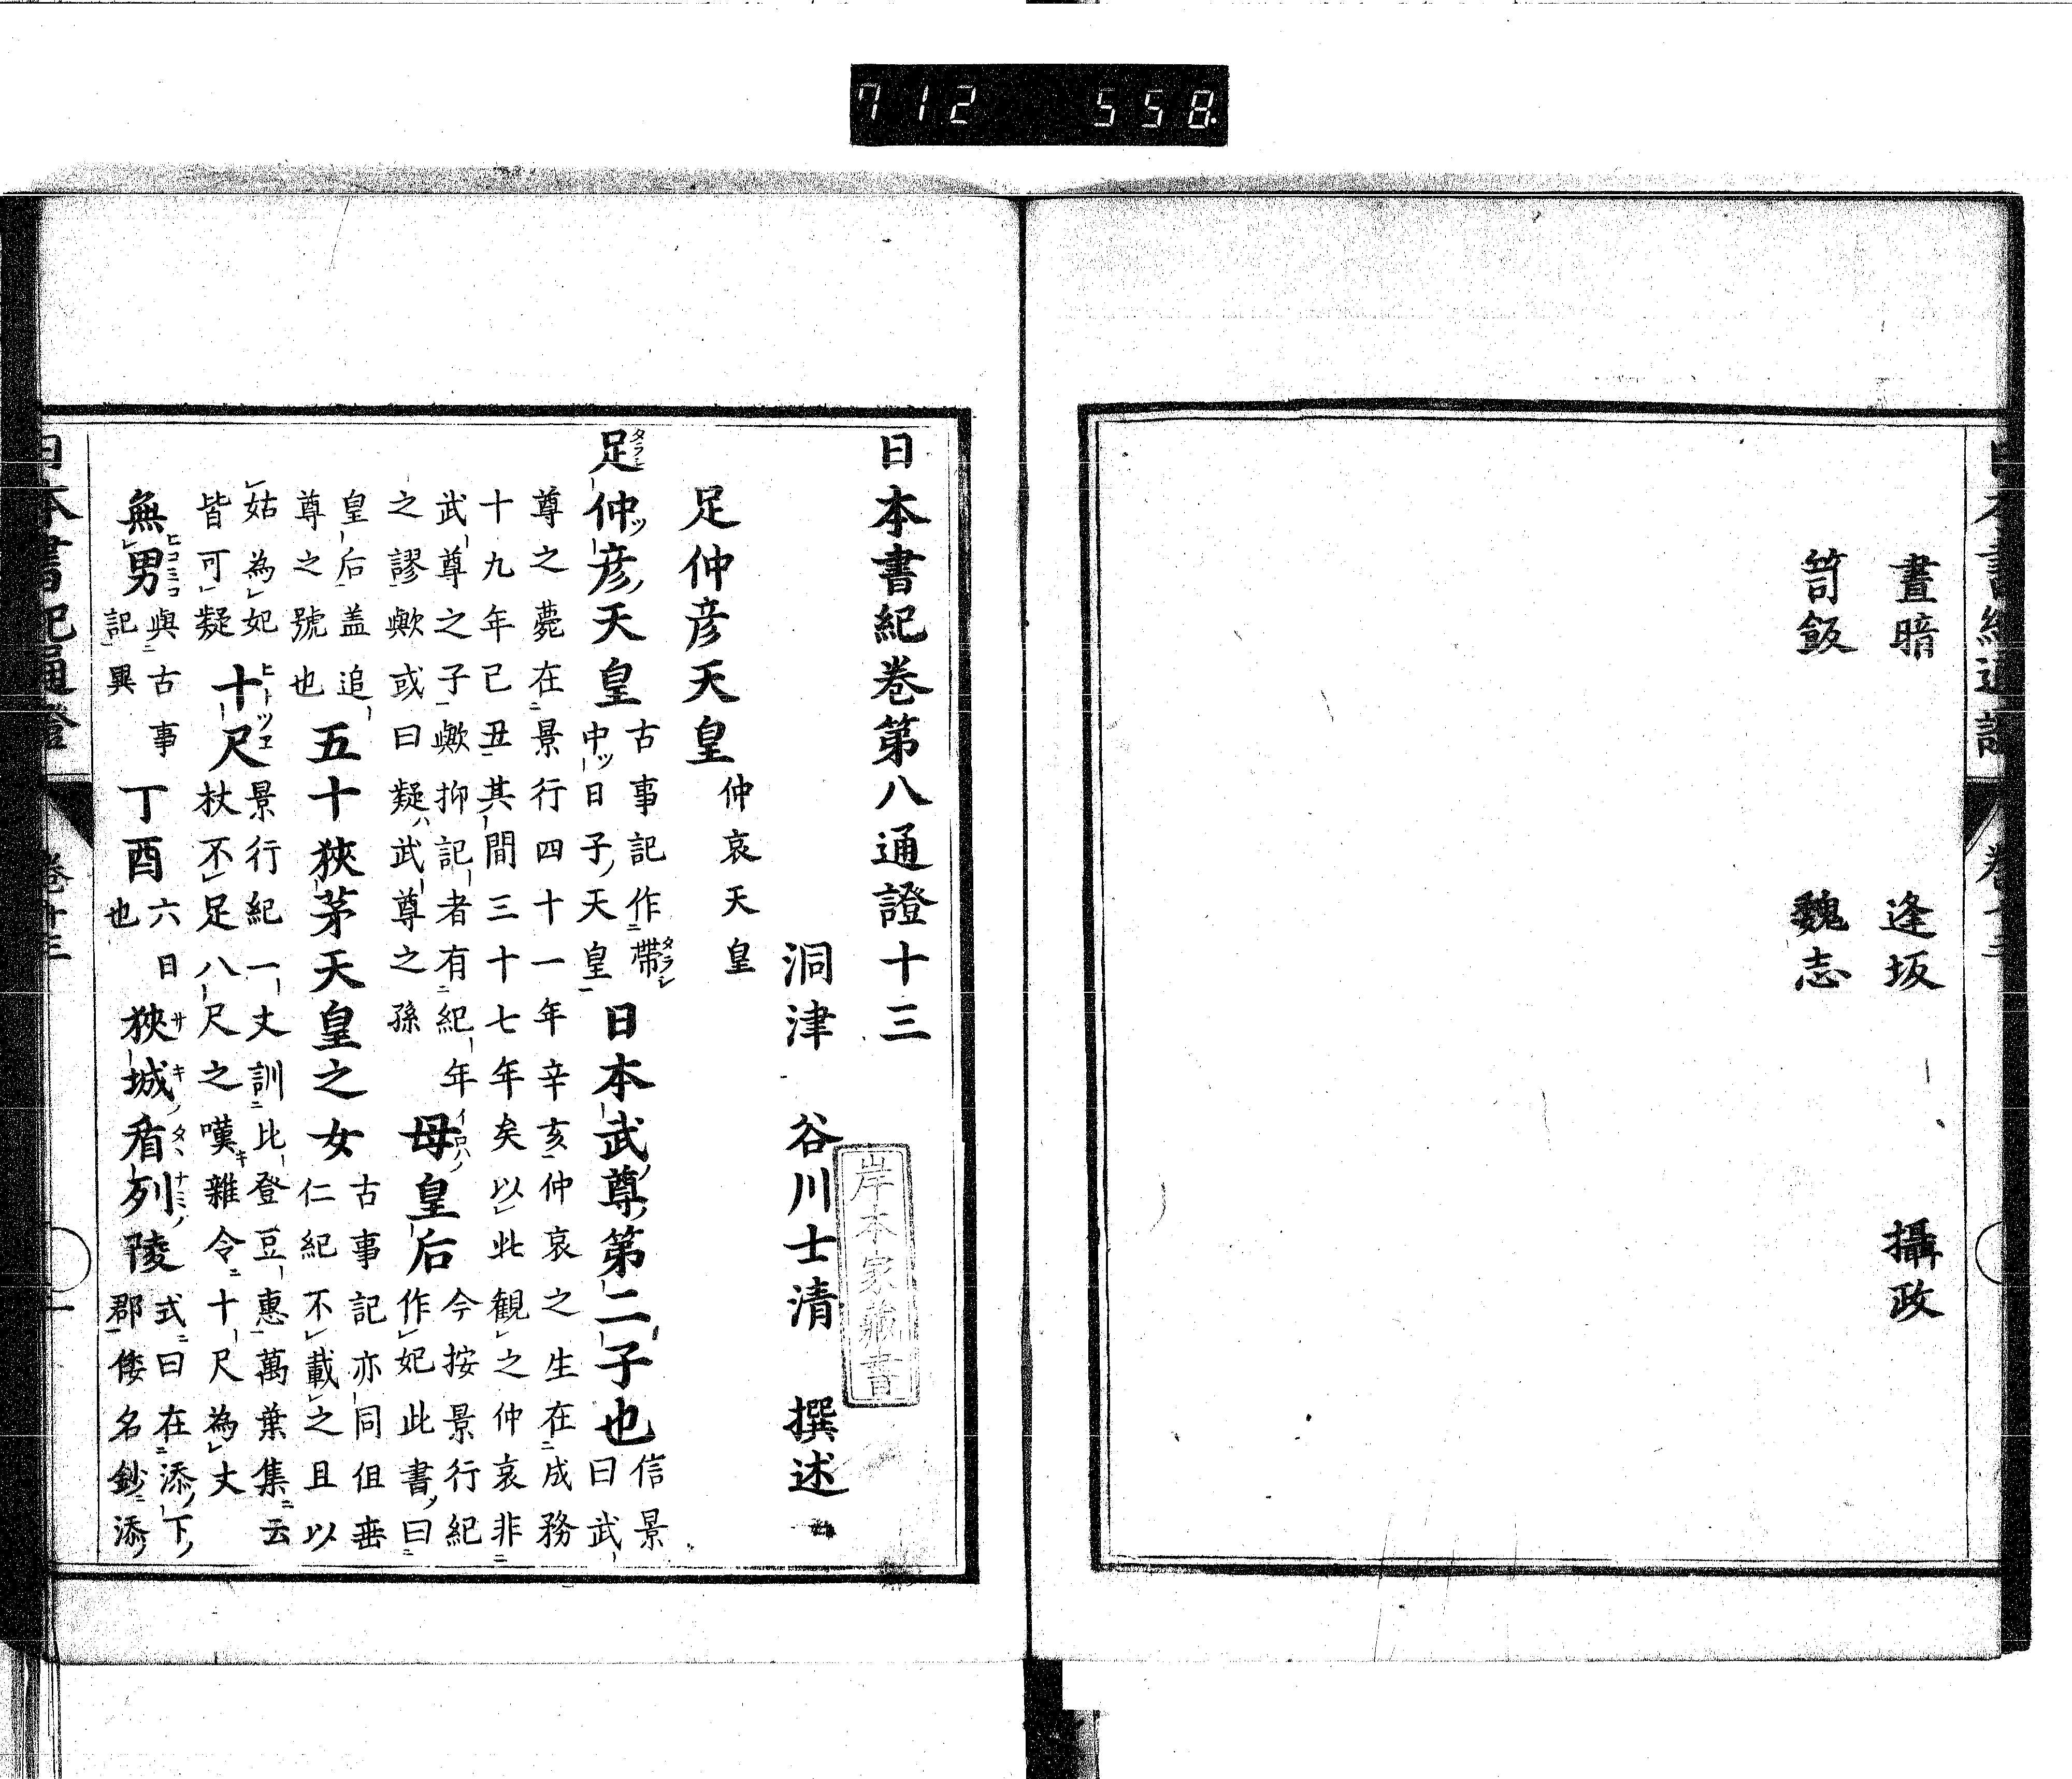 712 558.
晝暗 逢坂 攝政
笥飯 魏志
日本書紀卷第八通證十三
洞津 谷川士清 撰述
岸本家藏書
足仲彦天皇 仲哀天皇
足仲彦天皇 古事記作帶中日子天皇 日本武尊第二子也 信景曰武
尊之薨在景行四十一年辛亥仲哀之生在成務
十九年己丑其間三十七年矣以此観之仲哀非
武尊之子歟抑記者有紀年之謬歟或曰疑武尊之孫 母皇后 今按景行紀作妃此書曰
皇后盖追尊之號也 五十狹茅天皇之女 古事記亦同但垂仁紀不載之且以
姑為妃皆可疑 十尺 景行紀一丈訓比登豆惠萬葉集云杖不足八尺之嘆雜令十尺為丈
無男 與古事記異 丁酉 六日也 狹城盾列陵 式曰在添下郡倭名鈔添
日本書紀通證 卷十三 一